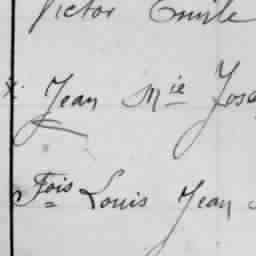 Victor Emile
x Jean Mie Jose
Fois Louis Jean